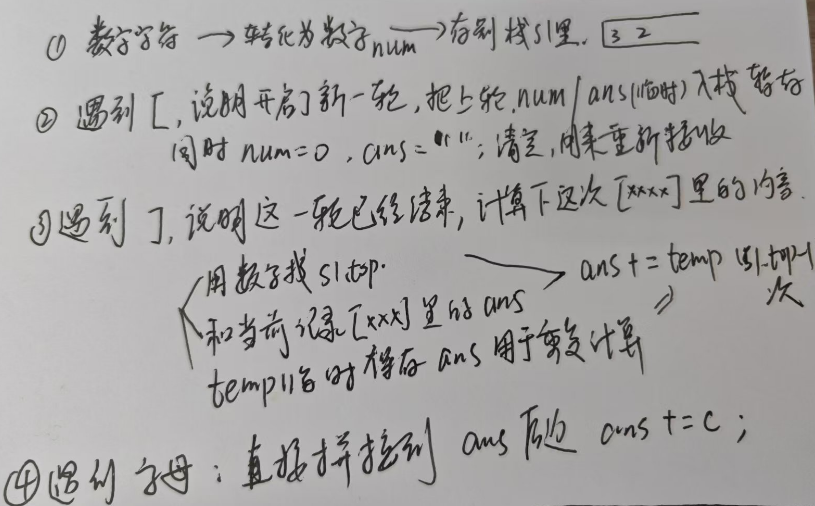 ① 数字字符 → 转化为数字num → 存到栈s1里. 3 2
② 遇到 [, 说明开启了新一轮, 把上轮.num/ans(临时)入栈暂存
同时 num=0, ans=""; 清空, 用来重新接收
③ 遇到 ], 说明这一轮已经结束, 计算下这次[xxxx]里的内容.
用数字栈 s1.top.
和当前记录[xxx]里的ans
→ ans += temp (s1.top-1)次
temp临时存 ans 用于重复计算
④ 遇到字母: 直接拼接到 ans后边 ans += c;